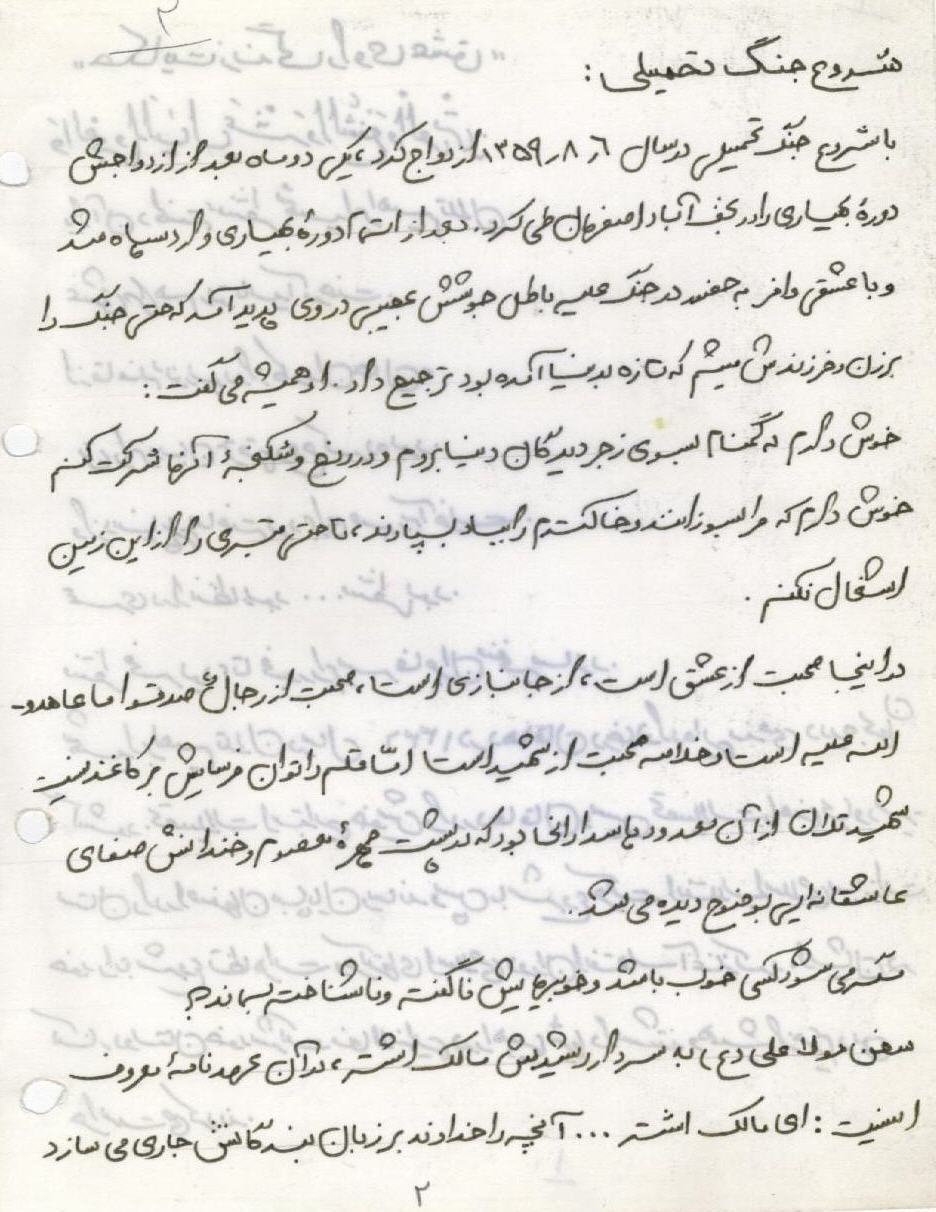 ۲
شروع جنگ تحمیلی :
با شروع جنگ تحمیلی در سال ۶ر۸ر۱۳۵۹ ازدواج کرد، یکی دو ماه بعد از ازدواجش
دورهٔ بهیاری را در نجف آباد اصفهان طی کرد. بعد از اتمام دورهٔ بهیاری وارد سپاه شد
و با عشقی وافر به حضور در جنگ علیه باطل جوشش عجیبی در وی پدید آمد که حتی جنگ را
بر زن و فرزندش میثم که تازه بدنیا آمده بود ترجیح داد. او همیشه می گفت :
خوش دارم که گمنام بسوی زجر دیدگان دنیا بروم و در رنج و شکنجهٔ آنها شرکت کنم
خوش دارم که مرا بسوزانند و خاکسترم را بباد بسپارند، تا حتی قبری را از این زمین
اشغال نکنم .
در اینجا صحبت از عشق است، از جانبازی است، صحبت از رجالٌ صدقوا ما عاهدو-
الله علیه است و خلاصه صحبت از شهید است امّا قلم را توان فرسایش بر کاغذ نیست
شهید تکران از آن معدود پاسدارانی بود که در پشت چهرهٔ معصوم و خندانش صفای
عاشقانه ایی بوضوح دیده می شد.
مگر می شود کسی خوب باشد و خوبیهایش ناگفته و ناشناخته بماند؟
سخن مولا علی (ع) به سردار رشیدش مالک اشتر، در آن عهدنامهٔ معروف
اینست : ای مالک اشتر ... آنچه را خداوند بر زبان بندگانش جاری می سازد
۲